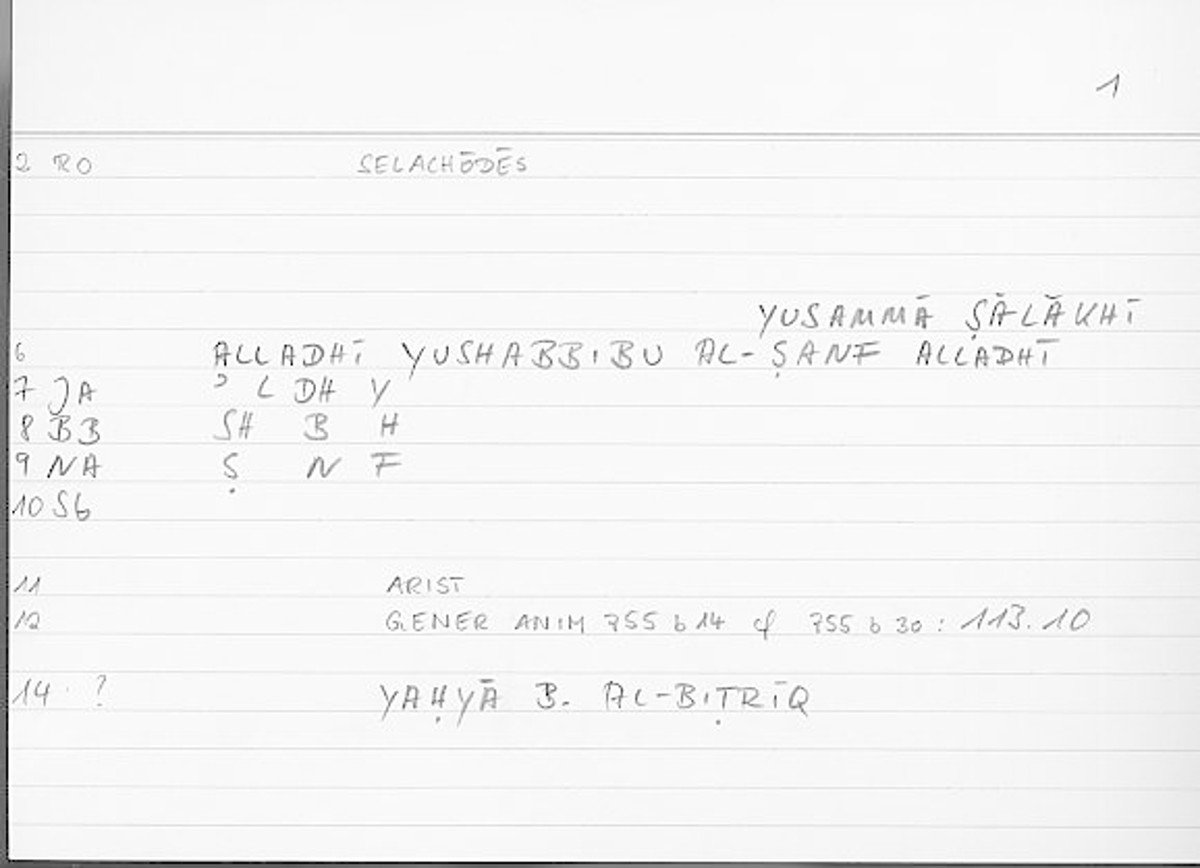 1
2 RO SELACHŌDĒS
YUSAMMĀ ṢĀLĀKHĪ
6 ALLADHĪ YUSHABBIBU AL-ṢANF ALLADHĪ
7 JA ʾ L DH Y
8 BB SH B H
9 NA Ṣ N F
10 SG
11 ARIST
12 GENER ANIM 755 b 14 cf 755 b 30 : 113.10
14 . ? YAḤYĀ B. AL-BIṬRĪQ